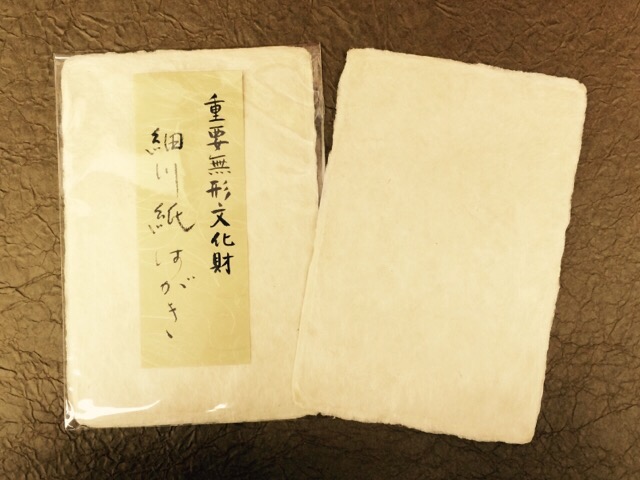 重要無形文化財
細川紙はがき